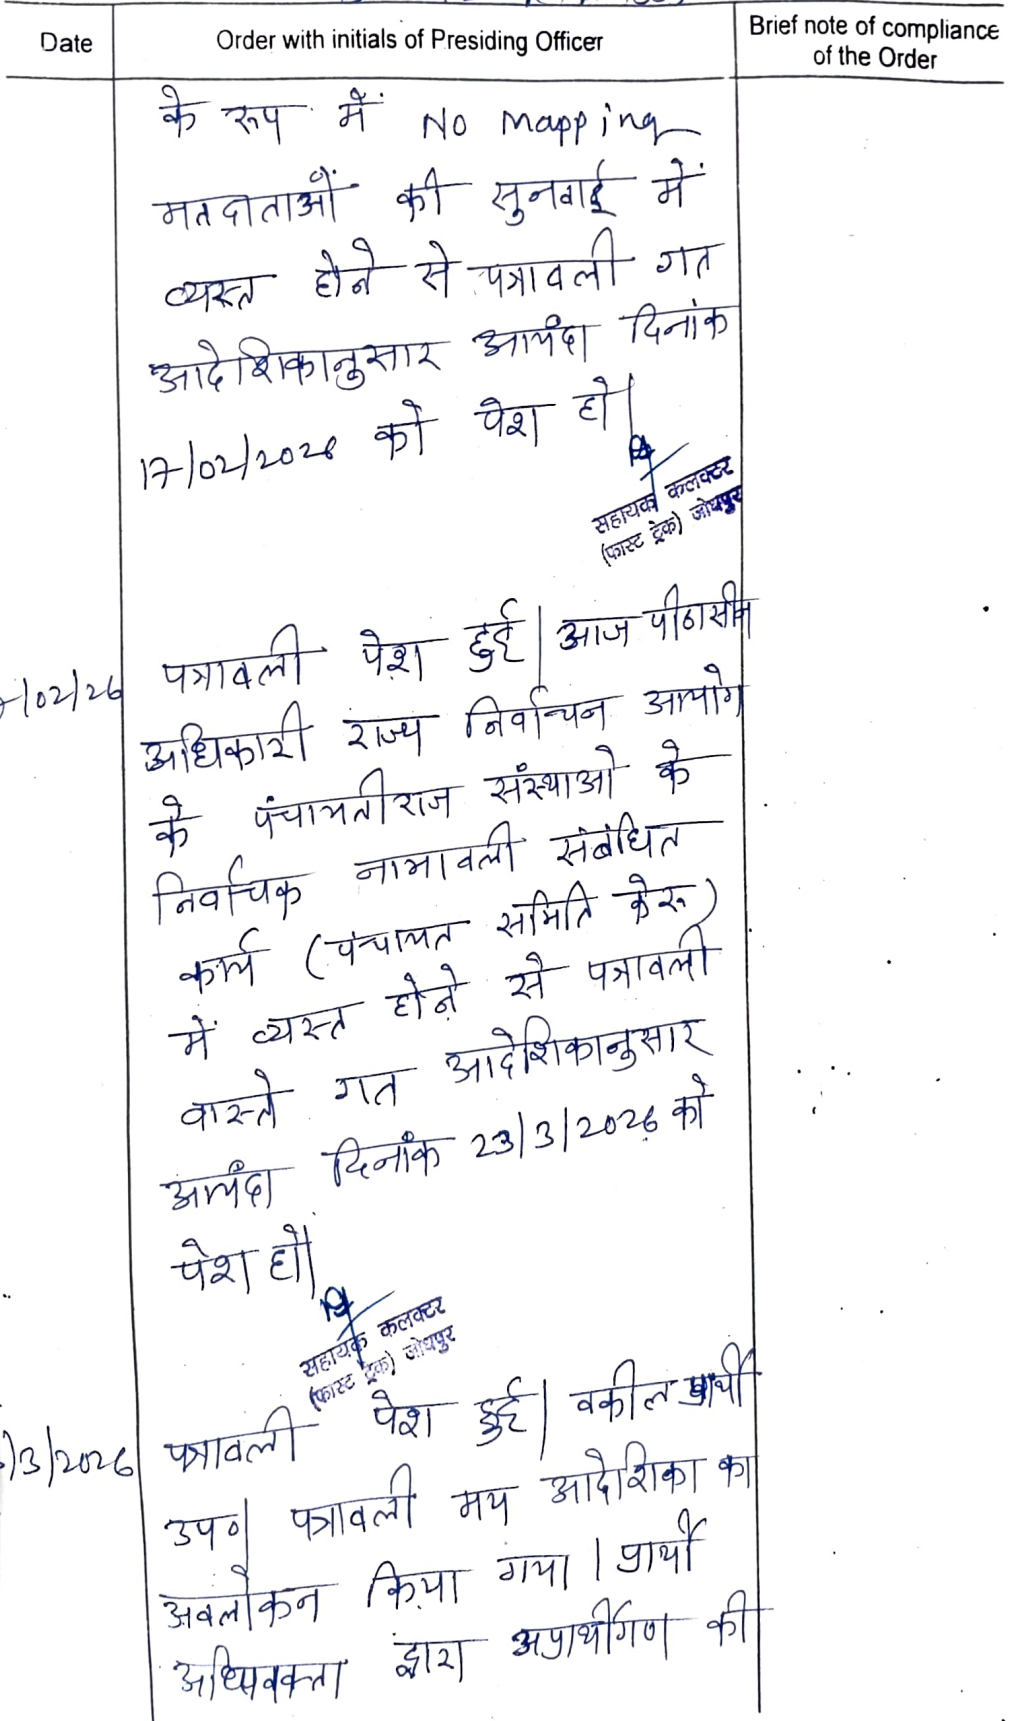 Date
Order with initials of Presiding Officer
Brief note of compliance
of the Order
के रूप में No Mapping
मतदाताओं की सुनवाई में
व्यस्त होने से पत्रावली गत
आदेशिकानुसार आयंदा दिनांक
17/02/2026 को पेश हो|
सहायक कलक्टर
(फास्ट ट्रेक) जोधपुर
पत्रावली पेश हुई| आज पीठासीन
/02/26
अधिकारी राज्य निर्वाचन आयोग
के पंचायतीराज संस्थाओ के
निर्वाचक नामावली संबंधित
कार्य (पंचायत समिति केरू)
में व्यस्त होने से पत्रावली
वास्ते गत आदेशिकानुसार
आयंदा दिनांक 23/3/2026 को
पेश हो|
सहायक कलक्टर
(फास्ट ट्रेक) जोधपुर
पत्रावली पेश हुई| वकील प्रार्थी
/3/2026
उप०| पत्रावली मय आदेशिका का
अवलोकन किया गया| प्रार्थी
अधिवक्ता द्वारा अप्रार्थीगण की